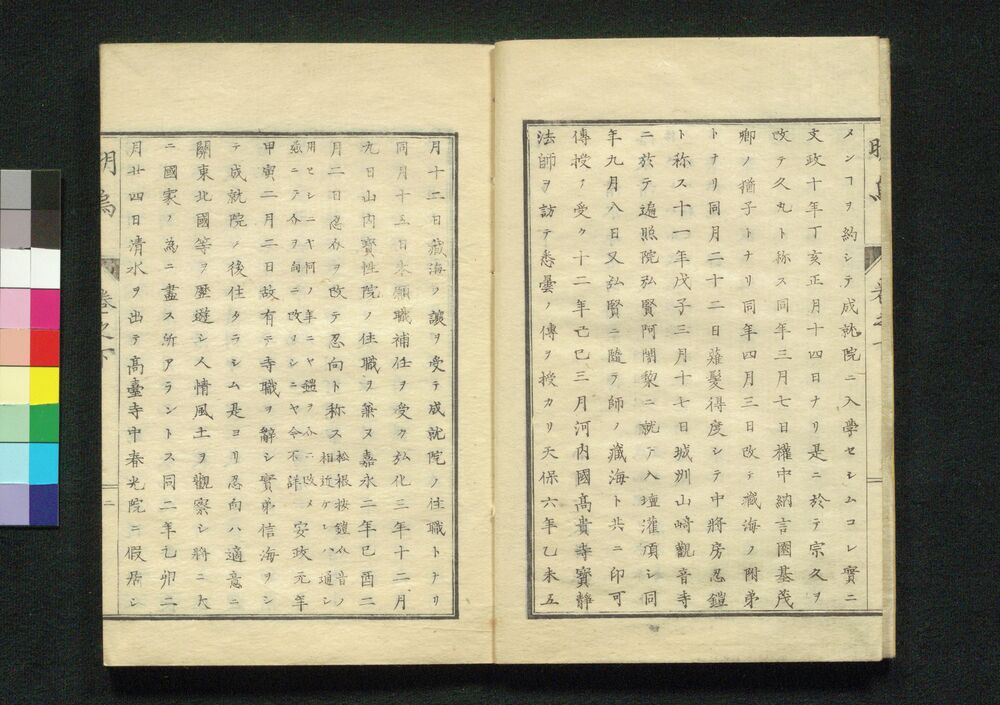 メンヿヲ約シテ成就院ニ入學セシムコレ實ニ
文政十年丁亥正月十四日ナリ是ニ於テ宗久ヲ
改テ久丸ト称ス同年三月七日權中納言園基茂
卿ノ猶子トナリ同年四月三日改テ藏海ノ附弟
トナリ同月二十二日薙髮得度シテ中將房忍鎧
ト称ス十一年戊子三月十七日城洲山崎觀音寺
ニ於テ遍照院弘賢阿闍黎ニ就テ入壇灌頂シ同
年九月八日又弘賢ニ隨テ師ノ藏海ト共ニ印可
傳授ヲ受ク十二年己巳三月河内國高貴寺實靜
法師ヲ訪テ悉曇ノ傳ヲ授カリ天保六年乙未五
月十二日藏海ノ讓ヲ受テ成就院ノ住職トナリ
同月十五日本願職補任ヲ受ク弘化三年十二月
九日山内寳性院ノ住職ヲ兼ヌ嘉永二年巳酉二
月二日忍介ヲ改テ忍向ト称ス松根按鎧介昔ノ
相近ケレハ通シ
用ヒシニヤ何ノ年ニヤ鎧ヲ介ニ改メ
亟ニテ介ヲ向ニ改リシニヤ今不詳安政元年
甲寅二月二日故有テ寺職ヲ辭シ實弟信海ヲシ
テ成就院ノ後住タラシム是ヨリ忍向ハ適意ニ
關東北國等ヲ歷遊シ人情風土ヲ觀察シ將ニ大
ニ國家ノ為ニ盡ス所アラントス同二年乙卯二
月廿四日清水ヲ出テ高臺寺中春光院ニ假居シ
明烏
卷之下
二